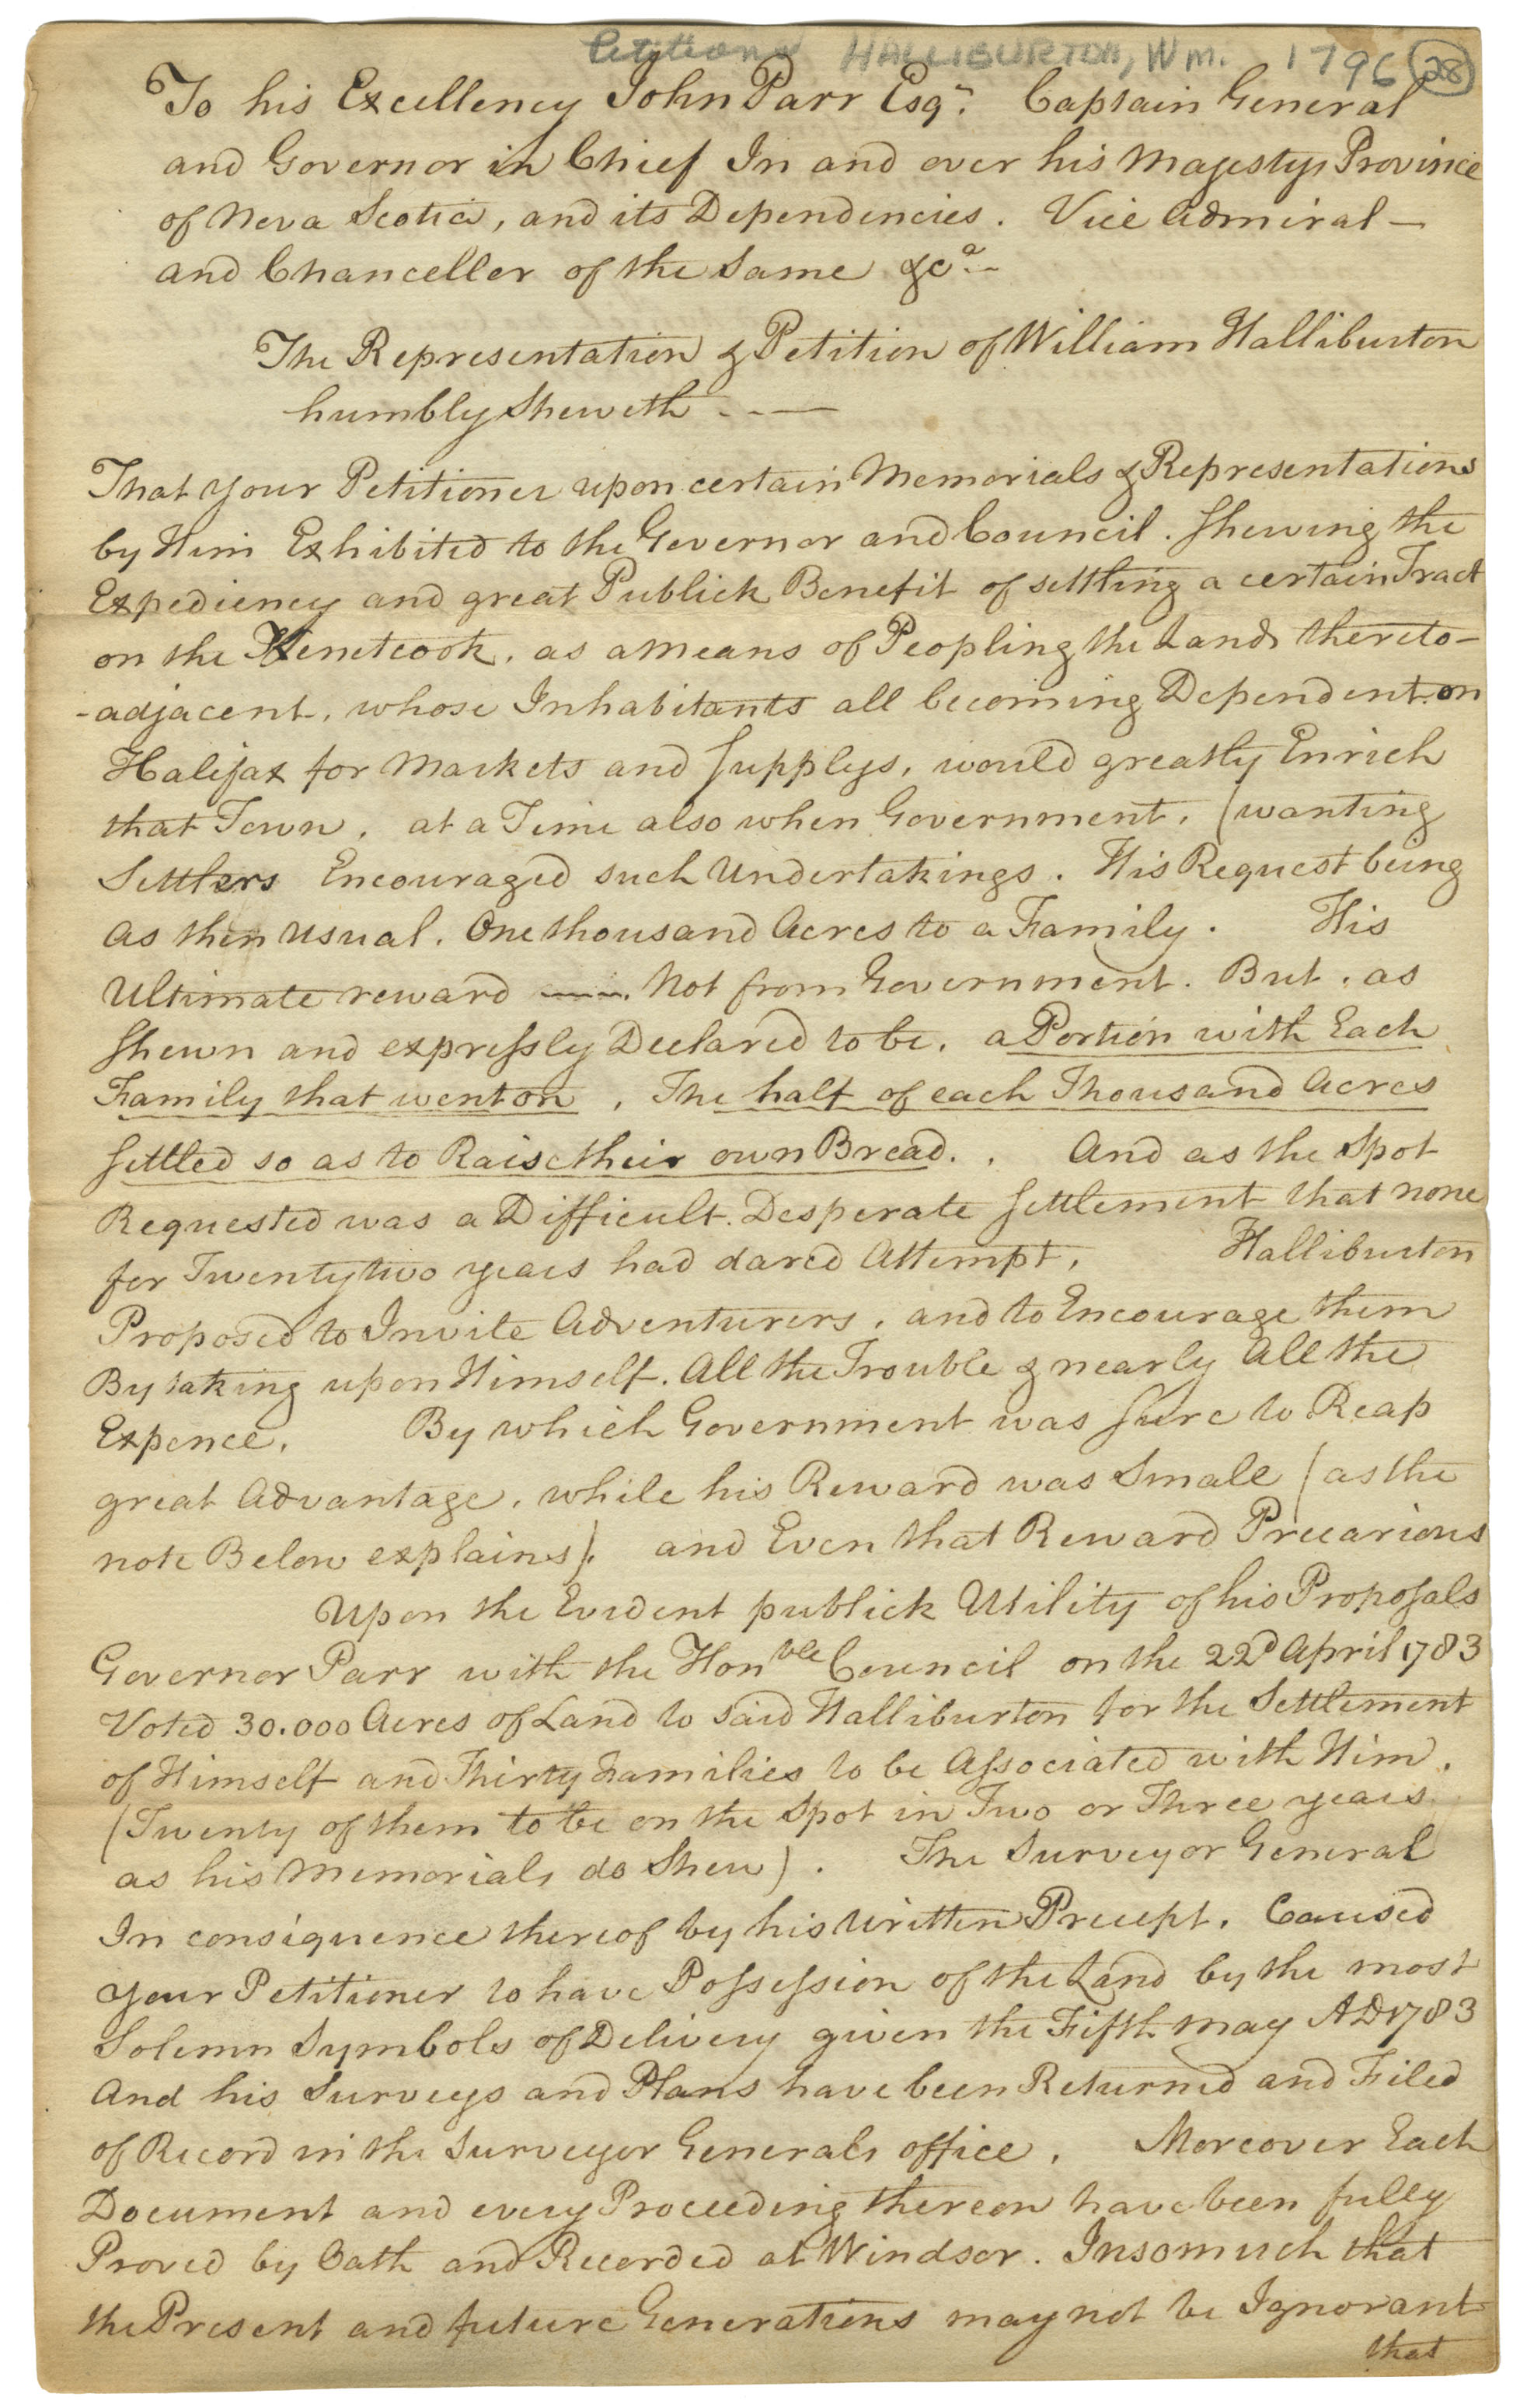 Petitions HALLIBURTON, Wm. 1796 (28)
To his Excellency John Parr Esqr. Captain General
and Governor in Chief In and over his Majestys Province
of Nova Scotia, and its Dependencies. Vice Admiral —
and Chanceller of the Same &ca. -
The Representation & Petition of William Halliburton
humbly Sheweth - - —
That your Petitioner upon certain Memorials & Representations
by Him Exhibited to the Governor and Council. Shewing the
Expediency and great Publick Benefit of settling a certain Tract
on the Kenetcook. as a means of Peopling the Lands thereto-
-adjacent, whose Inhabitants all becoming Dependent on
Halifax for Markets and Supplys, would greatly Enrich
that Town. at a Time also when Government, (wanting
Settlers Encouraged such Undertakings. His Request being
as then usual. One thousand Acres to a Family. His
Ultimate reward Not from Government. But. as
Shewn and expressly Declared to be, a Portion with Each
Family that went on, The half of each Thousand Acres
Settled so as to Raise their own Bread. . And as the Spot
Requested was a Difficult. Desperate Settlement that none
for Twenty two years had dared Attempt, Halliburton
Proposed to Invite Adventurers, and to Encourage them
By taking upon Himself. All the Trouble & nearly All the
Expence. By which Government was Sure to Reap
great Advantage, while his Reward was Small (as the
note Below explains). and Even that Reward Precarious
Upon the Evident publick Utility of his Proposals
Governor Parr with the Honble Council on the 22d April 1783
Voted 30.000 Acres of Land to said Halliburton for the Settlement
of Himself and Thirty Families to be Associated with Him.
(Twenty of them to be on the Spot in Two or Three years
as his Memorials do Shew). The Surveyor General
In consiquence thereof by his written Precept. Caused
your Petitioner to have Possession of the Land by the most
Solemn Symbols of Delivery given the Fifth May AD 1783
And his Surveys and Plans have been Returned and Filed
of Record in the Surveyor Generals office. Moreover Each
Document and every Proceeding thereon have been fully
Proved by Oath and Recorded at Windsor. Insomuch that
the Present and future Generations may not be Ignorant
that